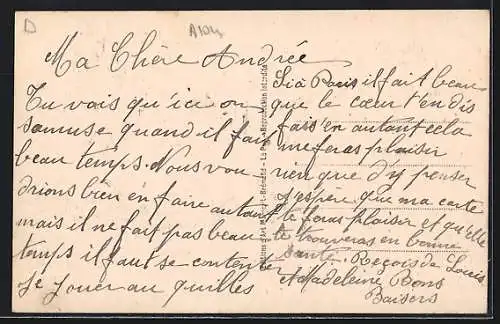 D
Ma Chère Andrée
Tu vais qu'ici on
samuse quand il fait
beau temps. Nous vou
drions bien en faire autant
mais il ne fait pas beau
temps il faut se contenter
de jouer au quilles
Si à Paris il fait beau
que le cœur t'en dis
fais s'en autant cela
me feras plaisir
rien que d'y penser
j'espère que ma carte
te feras plaisir et qu'elle
te trouveras en bonne
santé. Reçois de Louis
et Madeleine Bons
Baisers